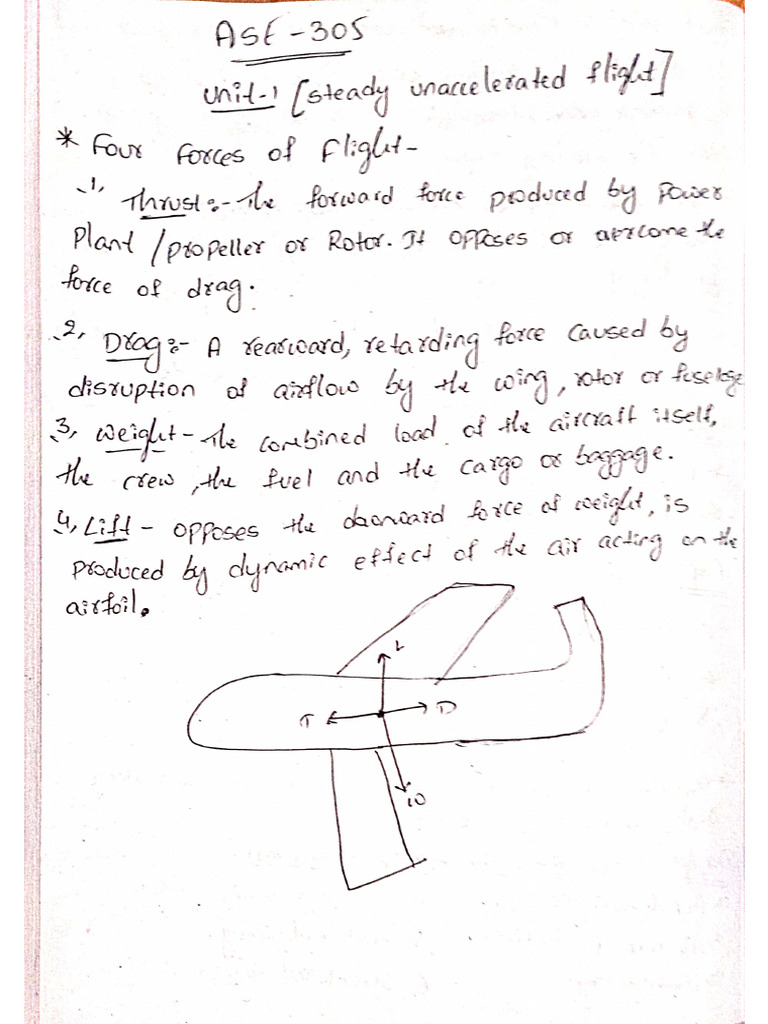 ASE-305
Unit-1 [steady unaccelerated flight]
* Four forces of flight-
1, Thrust:- The forward force produced by Power
Plant/propeller or Rotor. It opposes or overcome the
force of drag.
2, Drag:- A rearward, retarding force caused by
disruption of airflow by the wing, rotor or fuselage
3, Weight - The combined load of the aircraft itself,
the crew, the fuel and the cargo or baggage.
4, Lift - opposes the downward force of weight, is
produced by dynamic effect of the air acting on the
airfoil.
L
T D
w